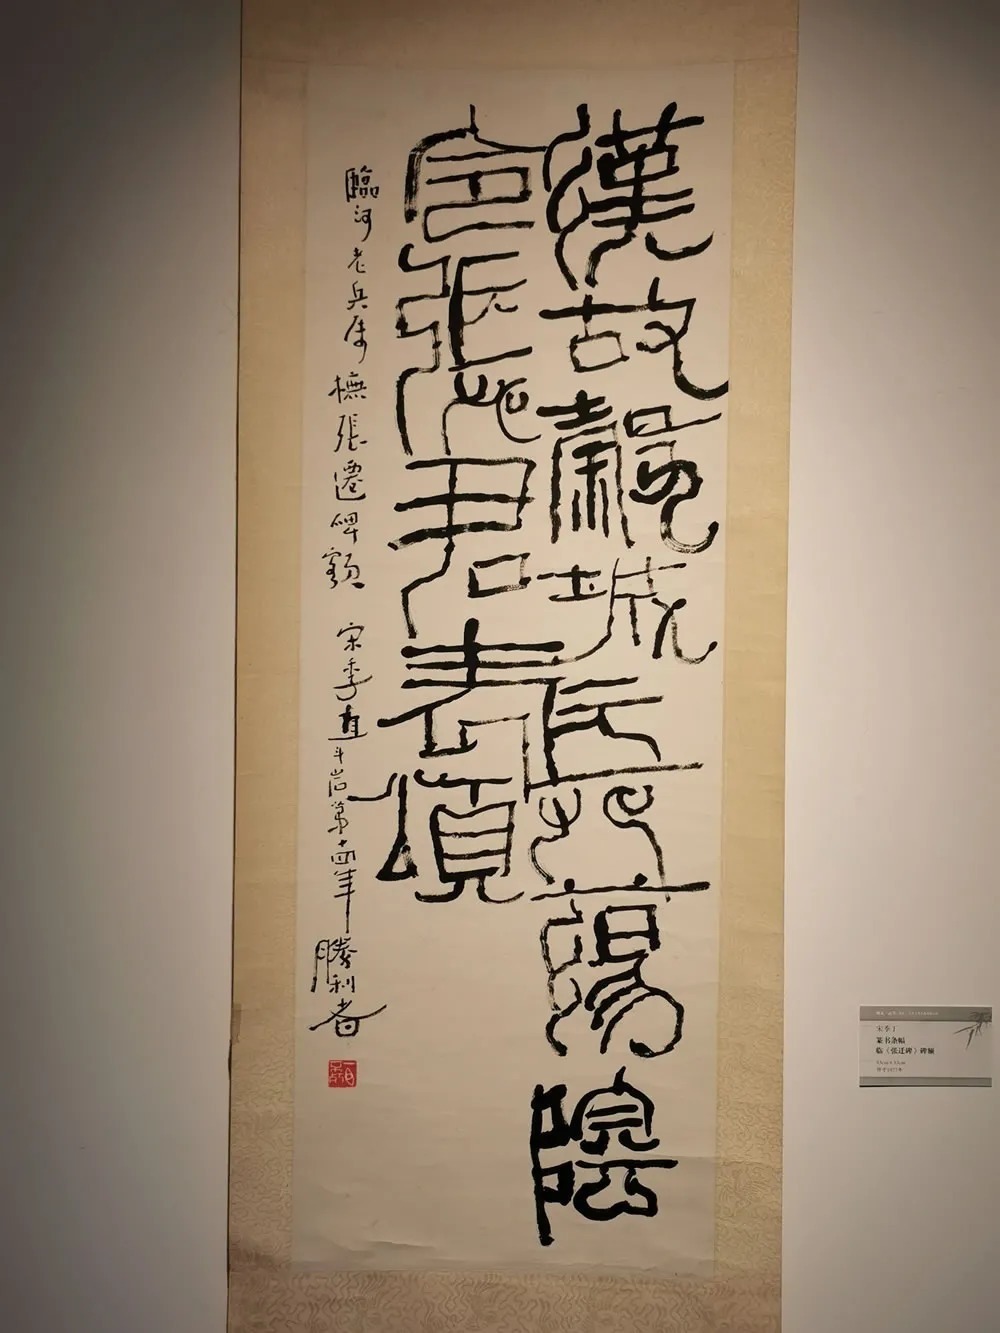 漢故穀城長蕩陰
令張君表頌
臨河老兵属橅張遷碑額 宋季直斗岩第十四年 勝利者
宋季丁
篆书条幅
临《张迁碑》碑额